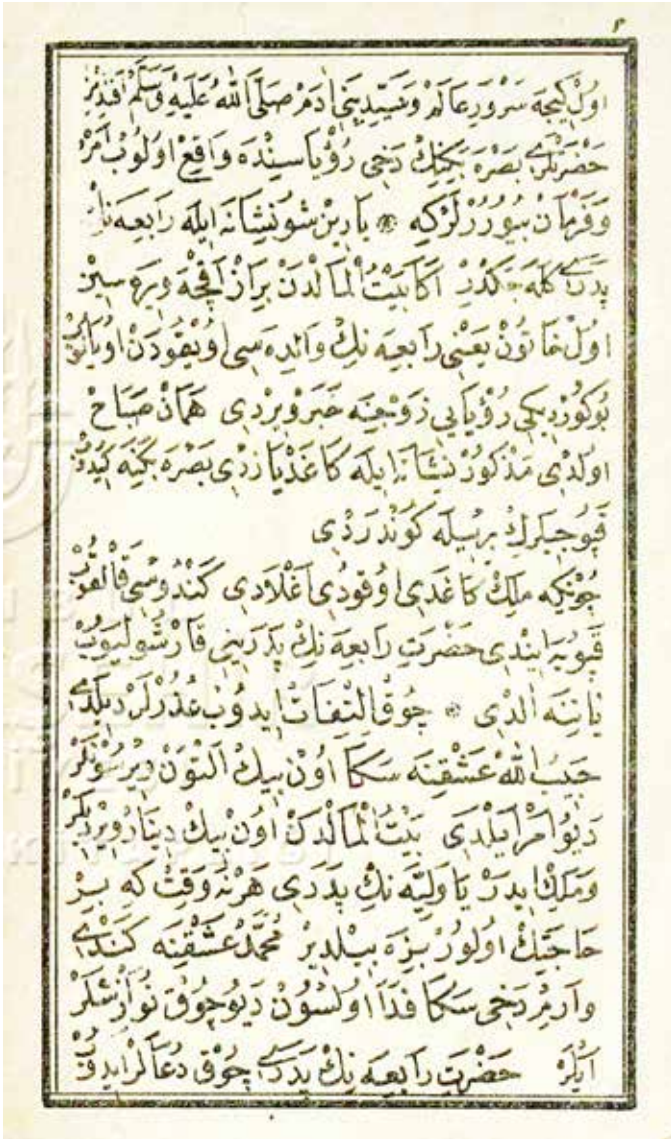 ٣
اول كيجه سرور عالم و سيد بنى ادم صلى الله عليه وسلم افنديمز
حضرتلرى بصره بكينك دخى رؤياسنده واقع اولوب امر
و فرمان بيوررلركه * يارين شو نشانه ايله رابعه نك
پدرى كله جكدر اكا بيت المالدن براز اقچه ويره سيز
اول خاتون يعنى رابعه نك والده سى اويقودن اويانوب
بو كورديكى رؤيايى زوجينه خبر ويردى همان صباح
اولدى مذكور نشانه ايله كاغد يازدى بصره بكينه كيدوب
قپوجيلرك بريله كوندردى
چونكه ملك كاغدى اوقودى اغلادى كندوسى قالقوب
قپويه ايندى حضرت رابعه نك پدرينى قارشوليوب
ياننه الدى * چوق التفات ايدوب عذرلر ديلدى
حبيب الله عشقنه سكا اون بيك التون ويرسونلر
ديو امر ايلدى بيت المالدن اون بيك دينار ويرديلر
و ملك ايدر يا وليه نك پدرى هر نه وقت كه بر
حاجتك اولور بزه بيلدير محمد عشقنه كندى
وارم دخى سكا فدا اولسون ديو چوق نوازشلر
ايلر حضرت رابعه نك پدرى چوق دعالر ايدوب